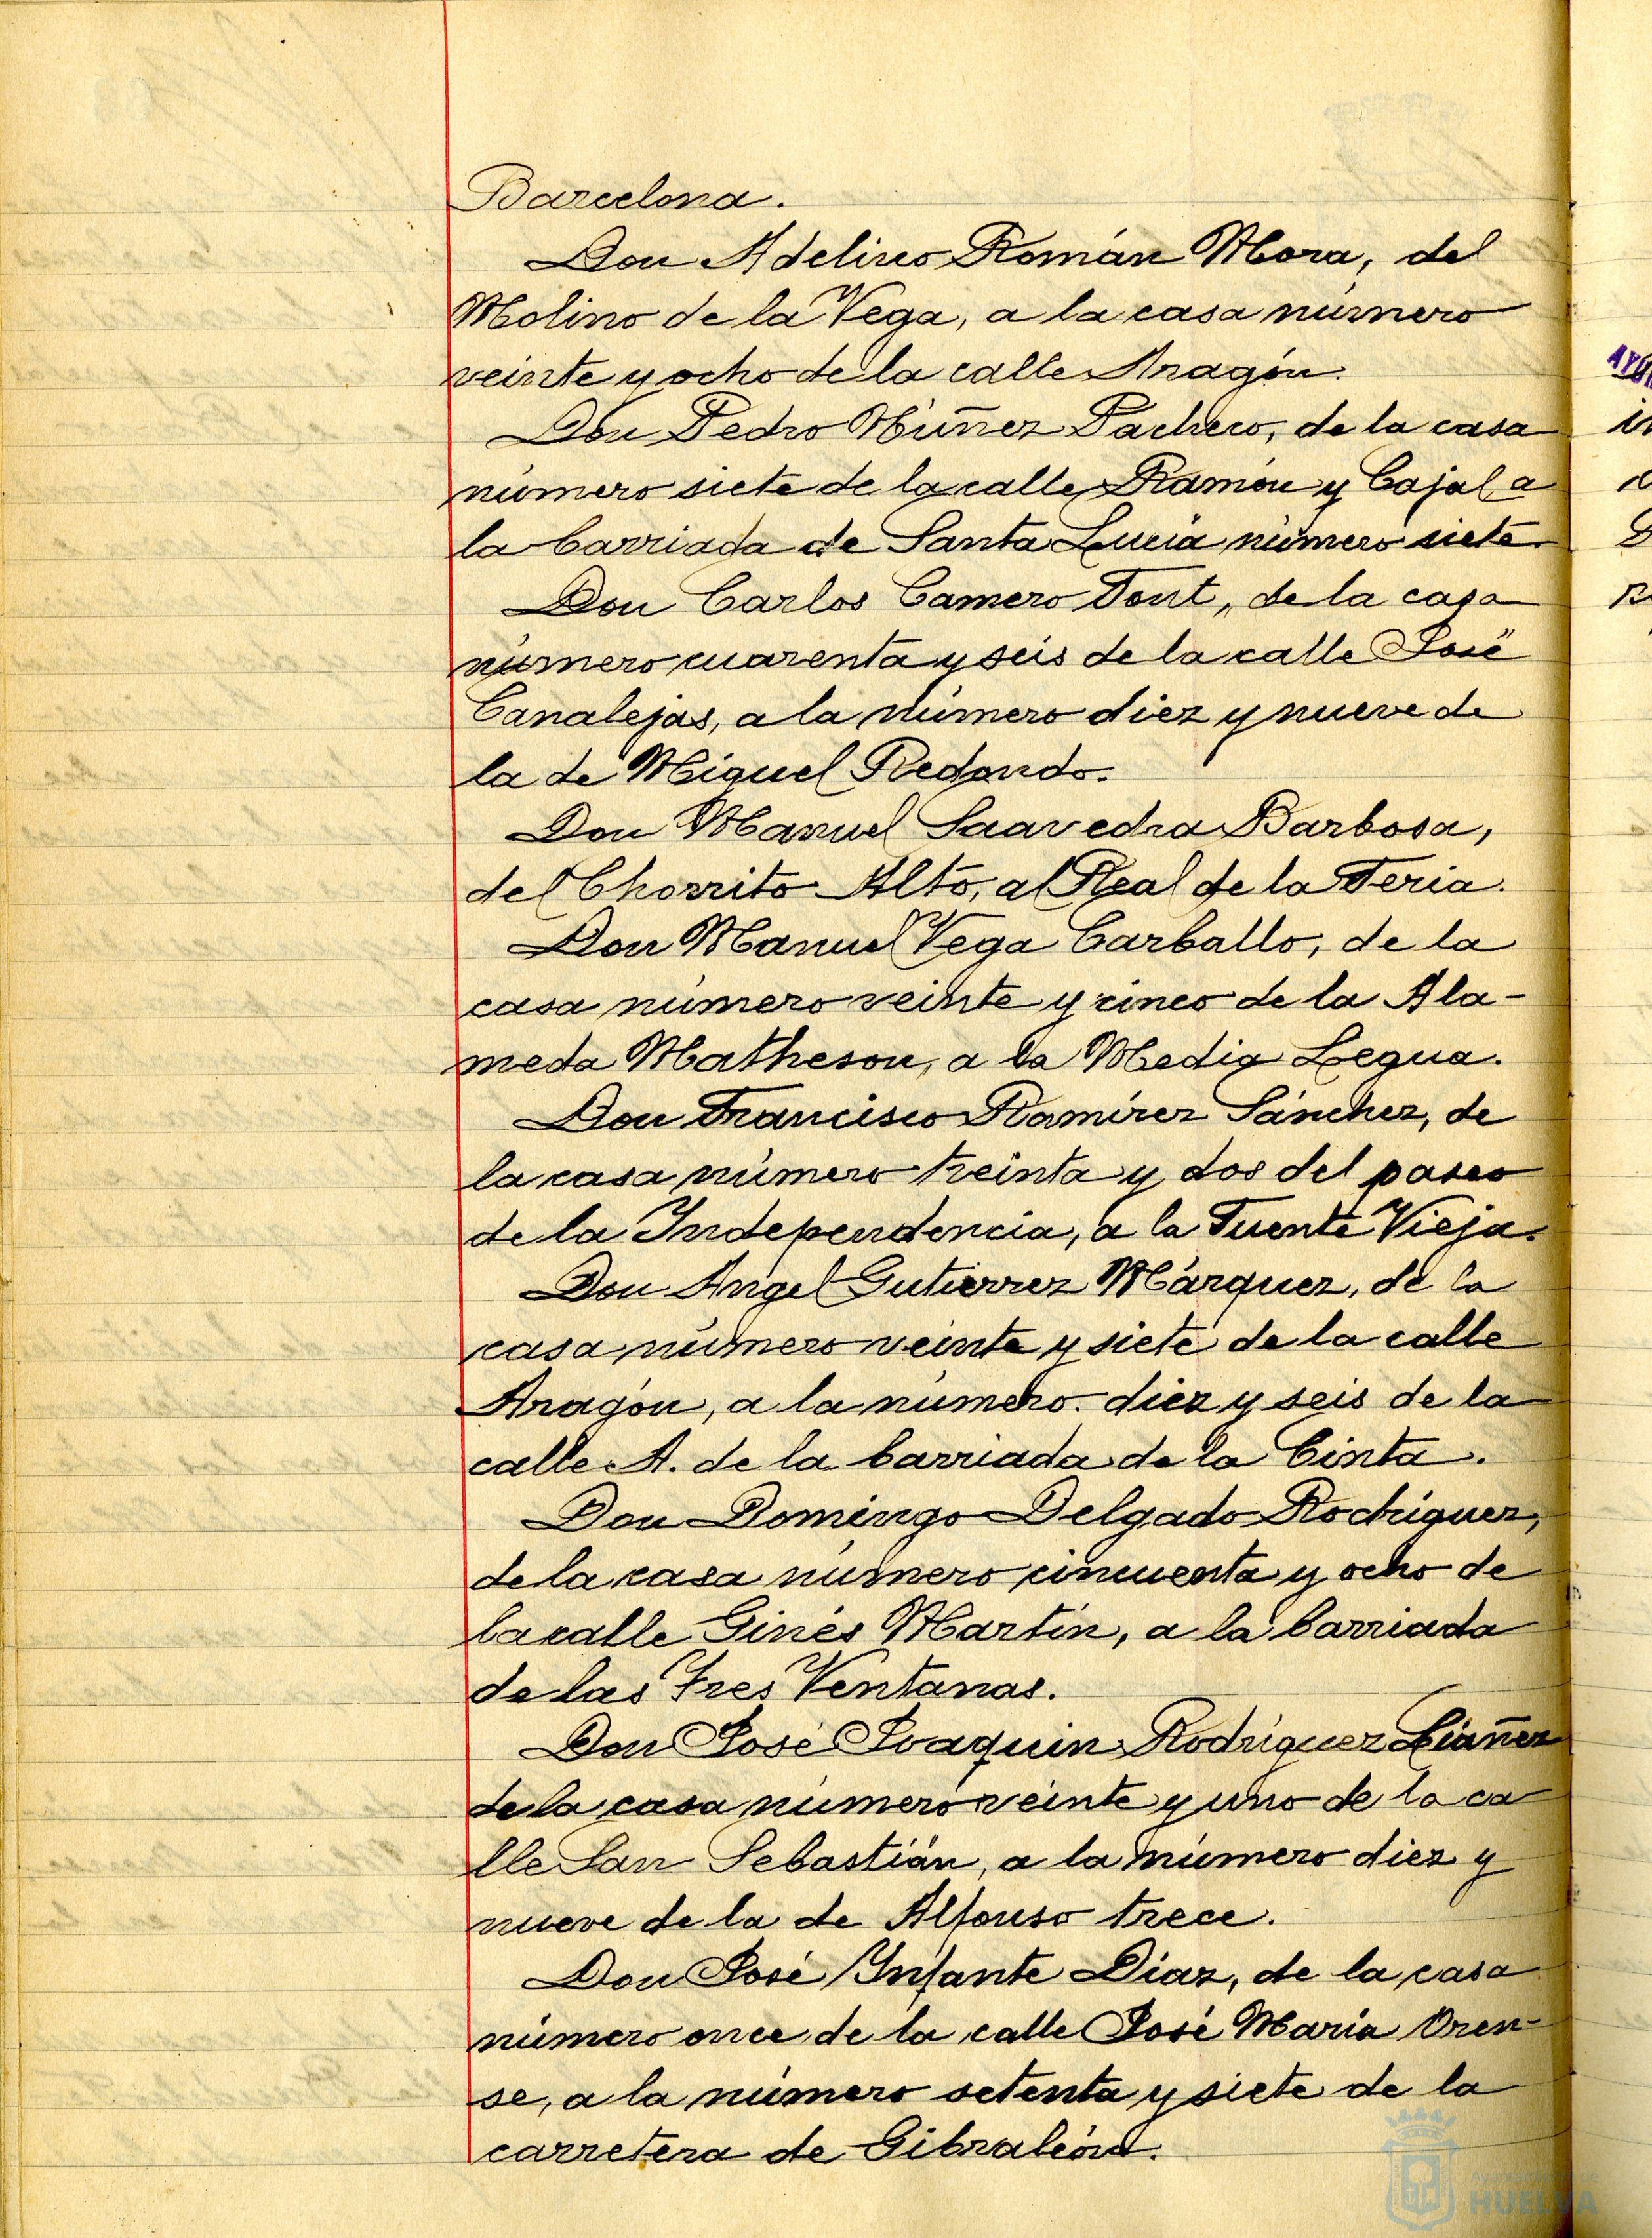 Barcelona.
Don Adelino Román Mora, del
Molino de la Vega, a la casa número
veinte y ocho de la calle Aragón.
Don Pedro Núñez Pacheco, de la casa
número siete de la calle Ramón y Cajal a
la barriada de Santa Lucía número siete.
Don Carlos Camero Font, de la casa
número cuarenta y seis de la calle José
Canalejas, a la número diez y nueve de
la de Miguel Redondo.
Don Manuel Saavedra Barbosa,
del Chorrito Alto, al Real de la Feria.
Don Manuel Vega Carballo, de la
casa número veinte y cinco de la Ala-
meda Matheson, a la Media Legua.
Don Francisco Ramírez Sánchez, de
la casa número treinta y dos del paseo
de la Independencia, a la Fuente Vieja.
Don Angel Gutierrez Márquez, de la
casa número veinte y siete de la calle
Aragón, a la número. diez y seis de la
calle A. de la barriada de la Cinta.
Don Domingo Delgado Rodríguez,
de la casa número cincuenta y ocho de
la calle Ginés Martín, a la barriada
de las Tres Ventanas.
Don José Joaquin Rodríguez Liáñez
de la casa número veinte y uno de la ca
lle San Sebastián, a la número diez y
nueve de la de Alfonso trece.
Don José Infante Díaz, de la casa
número once de la calle José María Oren-
se, a la número setenta y siete de la
carretera de Gibraleón.
HUELVA